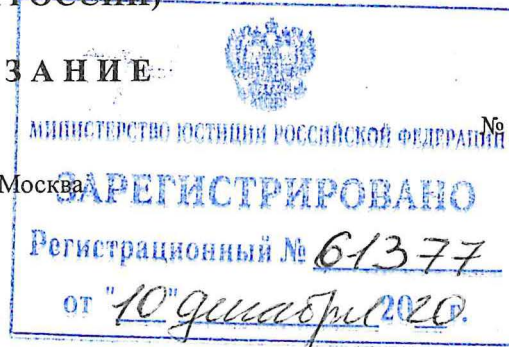 РОССИИ)
ЗАНИЕ
МИНИСТЕРСТВО ЮСТИЦИИ РОССИЙСКОЙ ФЕДЕРАЦИИ №
Москва
ЗАРЕГИСТРИРОВАНО
Регистрационный № 61377
от "10" декабря 2020 г.